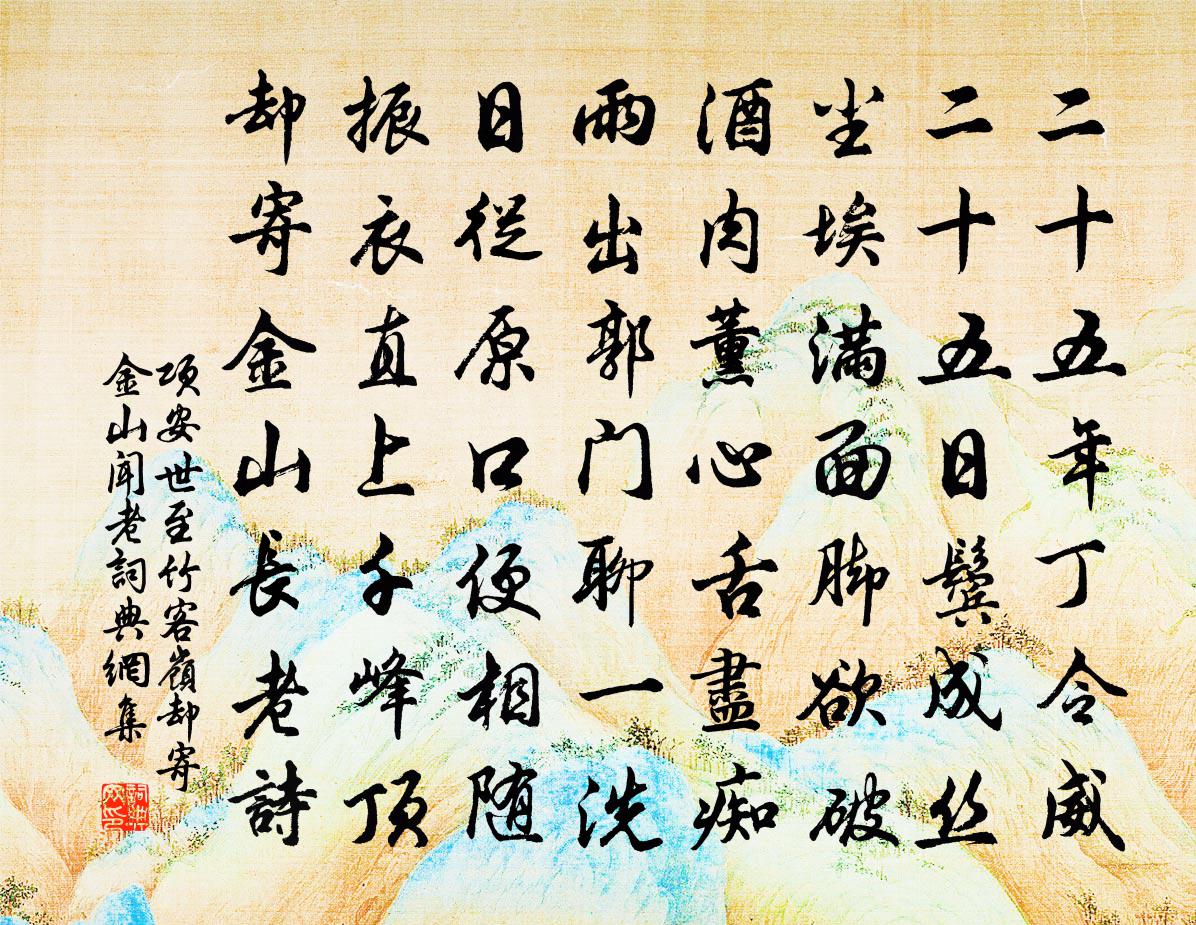 二十五年丁令威
二十五日鬓成丝
尘埃滿面脚欲破
酒肉薰心舌盡痴
雨出郭门聊一洗
日從原口便相随
振衣直上千峰顶
却寄金山長老詩
项安世至竹客嶺却寄
金山闻老詞典網集